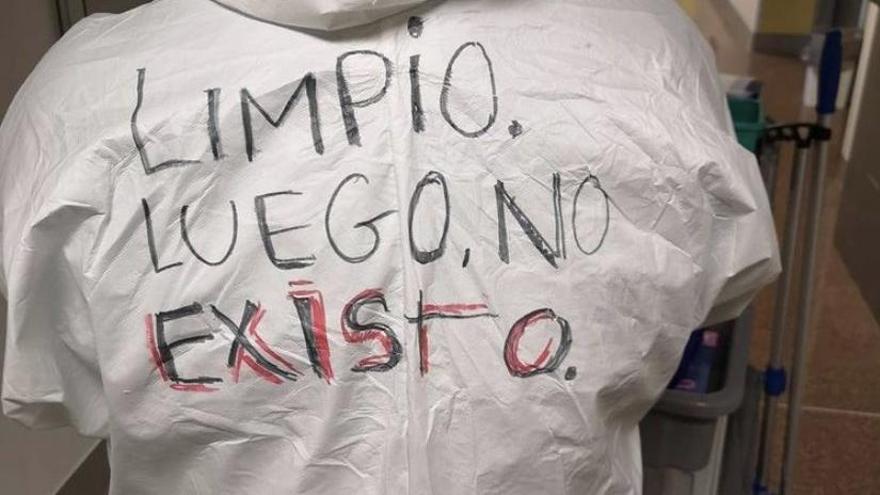 LIMPIO.
LUEGO, NO
EXISTO.